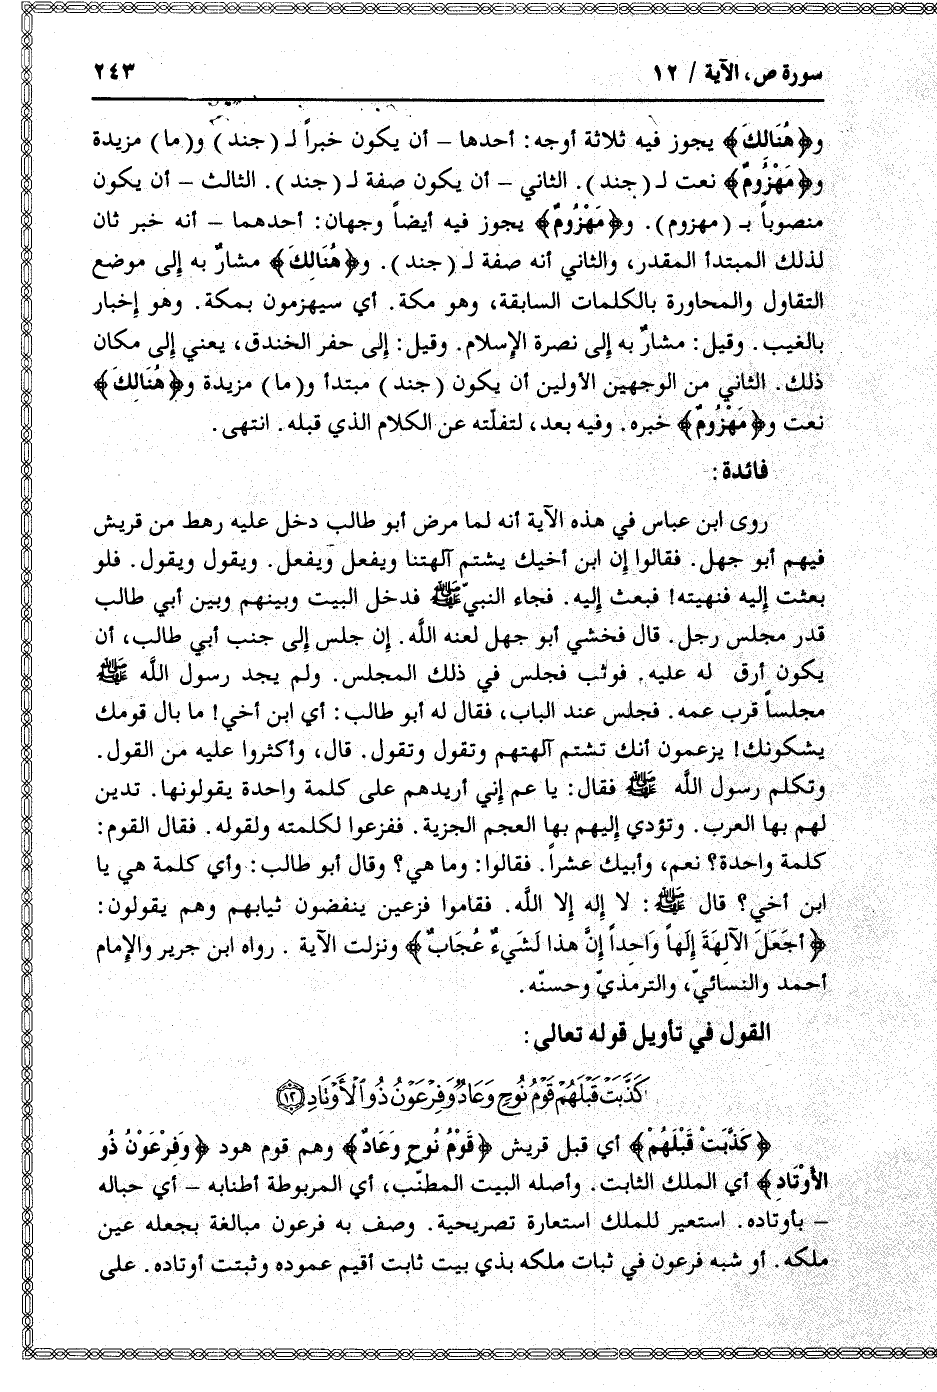 سورة ص، الآية / ١٢
٢٤٣
و﴿هُنَالِكَ﴾ يجوز فيه ثلاثة أوجه: أحدها – أن يكون خبراً لـ (جند) و(ما) مزيدة
و﴿مَهْزُومٌ﴾ نعت لـ (جند). الثاني – أن يكون صفة لـ (جند). الثالث – أن يكون
منصوباً بـ (مهزوم). و﴿مَهْزُومٌ﴾ يجوز فيه أيضاً وجهان: أحدهما – أنه خبر ثان
لذلك المبتدأ المقدر، والثاني أنه صفة لـ (جند). و﴿هُنَالِكَ﴾ مشارٌ به إلى موضع
التقاول والمحاورة بالكلمات السابقة، وهو مكة. أي سيهزمون بمكة. وهو إخبار
بالغيب. وقيل: مشارٌ به إلى نصرة الإسلام. وقيل: إلى حفر الخندق، يعني إلى مكان
ذلك. الثاني من الوجهين الأولين أن يكون (جند) مبتدأ و(ما) مزيدة و﴿هُنَالِكَ﴾
نعت و﴿مَهْزُومٌ﴾ خبره. وفيه بعد، لتفلّته عن الكلام الذي قبله. انتهى.
فائدة:
روى ابن عباس في هذه الآية أنه لما مرض أبو طالب دخل عليه رهط من قريش
فيهم أبو جهل. فقالوا إن ابن أخيك يشتم آلهتنا ويفعل ويفعل. ويقول ويقول. فلو
بعثت إليه فنهيته! فبعث إليه. فجاء النبيّ ﷺ فدخل البيت وبينهم وبين أبي طالب
قدر مجلس رجل. قال فخشي أبو جهل لعنه اللَّه. إن جلس إلى جنب أبي طالب، أن
يكون أرق له عليه. فوثب فجلس في ذلك المجلس. ولم يجد رسول اللَّه ﷺ
مجلساً قرب عمه. فجلس عند الباب، فقال له أبو طالب: أي ابن أخي! ما بال قومك
يشكونك! يزعمون أنك تشتم آلهتهم وتقول وتقول. قال، وأكثروا عليه من القول.
وتكلم رسول اللَّه ﷺ فقال: يا عم إني أريدهم على كلمة واحدة يقولونها. تدين
لهم بها العرب. وتؤدي إليهم بها العجم الجزية. ففزعوا لكلمته ولقوله. فقال القوم:
كلمة واحدة؟ نعم، وأبيك عشراً. فقالوا: وما هي؟ وقال أبو طالب: وأي كلمة هي يا
ابن أخي؟ قال ﷺ: لا إله إلا اللَّه. فقاموا فزعين ينفضون ثيابهم وهم يقولون:
﴿أَجَعَلَ الآلِهَةَ إِلَهاً وَاحِداً إِنَّ هذا لَشَيءٌ عُجَابٌ﴾ ونزلت الآية . رواه ابن جرير والإمام
أحمد والنسائيّ، والترمذيّ وحسنّه.
القول في تأويل قوله تعالى:
كَذَّبَتْ قَبْلَهُمْ قَوْمُ نُوحٍ وَعَادٌ وَفِرْعَوْنُ ذُو ٱلْأَوْتَادِ ﴿١٢﴾
﴿كَذَّبَتْ قَبْلَهُمْ﴾ أي قبل قريش ﴿قَوْمُ نُوحٍ وَعَادٌ﴾ وهم قوم هود ﴿وَفِرْعَوْنُ ذُو
الأَوْتَادِ﴾ أي الملك الثابت. وأصله البيت المطنّب، أي المربوطة أطنابه – أي حباله
– بأوتاده. استعير للملك استعارة تصريحية. وصف به فرعون مبالغة بجعله عين
ملكه. أو شبه فرعون في ثبات ملكه بذي بيت ثابت أقيم عموده وثبتت أوتاده. على